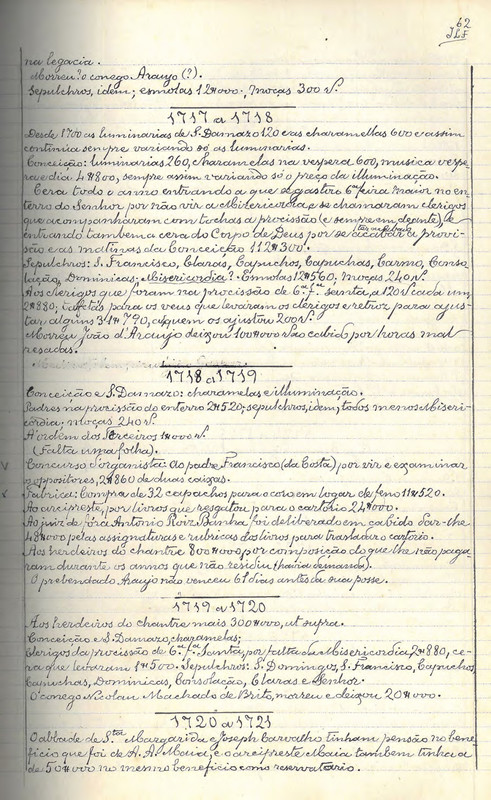 62
JLF
na legacia.
Morreu? o conego Araujo (?).
Sepulchros, idem; esmolas 12#000; moças 300 rs.
1717 a 1718
Desde 1700 as luminarias de S. Damazo 120 e as charamellas 600 e assim
continúa sempre variando só as luminarias.
Conceição: luminarias 260, charamelas na vespera 600, musica vespe-
ra e dia 4#800, sempre assim variando só o preço da illuminação.
Cera todo o anno entrando a que se gastou 6ª feira maior no en-
terro do Senhor por não vir a Misericordia e se chamaram clerigos
que acompanharam com tochas a procissão (e sempre em deante),
entrando tambem a cera do Corpo de Deus por se acabar a provi-
são e as matinas da Conceição 112#300.
Sepulchros: S. Francisco, Claras, Capuchos, Capuchas, Carmo, Conso-
lação, Dominicas. Misericordia? Esmolas 12#560, moças 240 rs.
Aos clerigos que foram na procissão de 6ª fª santa, a 120 rs cada um,
2#880, para os veus que levaram os clerigos e retroz para ajus-
tar alguns 31#790, a quem os ajustou 200 rs.
Morreu João d'Araujo deixou 100#000 ao cabido por horas mal
resadas.
1718 a 1719
Conceição e S. Damazo: charamelas e illuminação.
Padres na procissão do enterro 2#520; sepulchros, idem, todos menos Miseri-
cordia; moças 240 rs.
A ordem dos Terceiros 1#000 rs.
(Falta uma folha).
Concurso d'organista: ao padre Francisco (da Costa) por vir e examinar
os oppositores, 2#860 de duas caixas.
Fabrica: Compra de 32 capachos para o coro em logar de feno 11#520.
Ao arcipreste, por livros que resgatou para o cartorio 24#000.
Ao juiz de fóra Antonio Roiz Banha foi deliberado em cabido dar-lhe
48#000 pelas assignaturas e rubricas dos livros para trasladar o cartorio.
Aos herdeiros do chantre 800#000 por composição do que lhe não paga-
ram durante os annos que não residiu (havia demanda).
O prebendado Araujo não venceu 61 dias antes da sua posse.
1719 a 1720
Aos herdeiros do chantre mais 300#000, ut supra.
Conceição e S. Damazo, charamelas;
Clerigos da procissão de 6ª fª santa, por falta da Misericordia, 2#880, ce-
ra que levaram 1#500. Sepulchros: S. Domingos, S. Francisco, Capuchos,
Capuchas, Dominicas, Consolação, Claras e Senhor.
O conego Nicolau Machado de Brito, morreu e deixou 20#000.
1720 a 1721
O abbade de Sta Margarida e Joseph Carvalho tinham pensão no bene-
ficio que foi de A. A. Maia, e o arcipreste Maia tambem tinha a
de 50#000 no mesmo beneficio como reservatario.